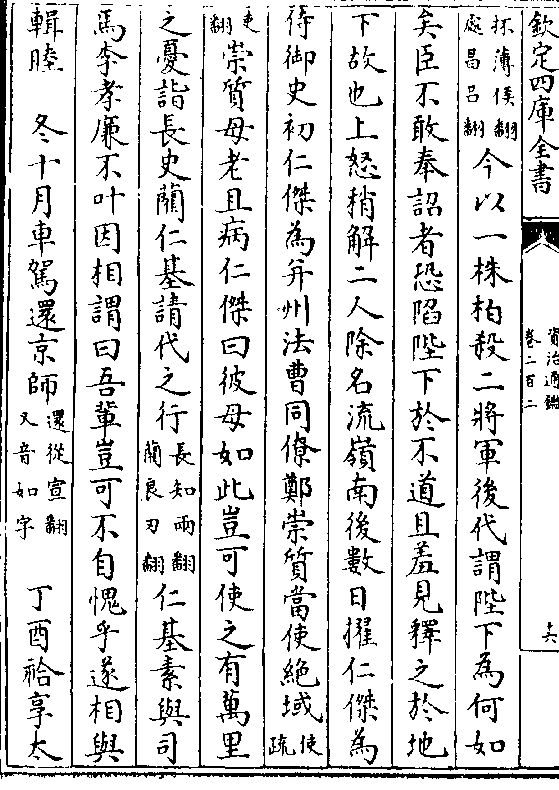 欽定四庫全書
資治通鑑
卷二百二
十六
抔薄侯翻
處昌呂翻
今以一株柏殺二將軍後代謂陛下為何如
矣臣不敢奉詔者恐陷陛下於不道且羞見釋之於地
下故也上怒稍解二人除名流嶺南後數日擢仁傑為
侍御史初仁傑為并州法曹同僚鄭崇質當使絶域
使
疏
吏
翻
崇質母老且病仁傑曰彼母如此豈可使之有萬里
之憂詣長史藺仁基請代之行
長知兩翻
藺良刃翻
仁基素與司
馬李孝廉不叶因相謂曰吾輩豈可不自愧乎遂相與
輯睦 冬十月車駕還京師
還從宣翻
又音如字
丁酉祫享太